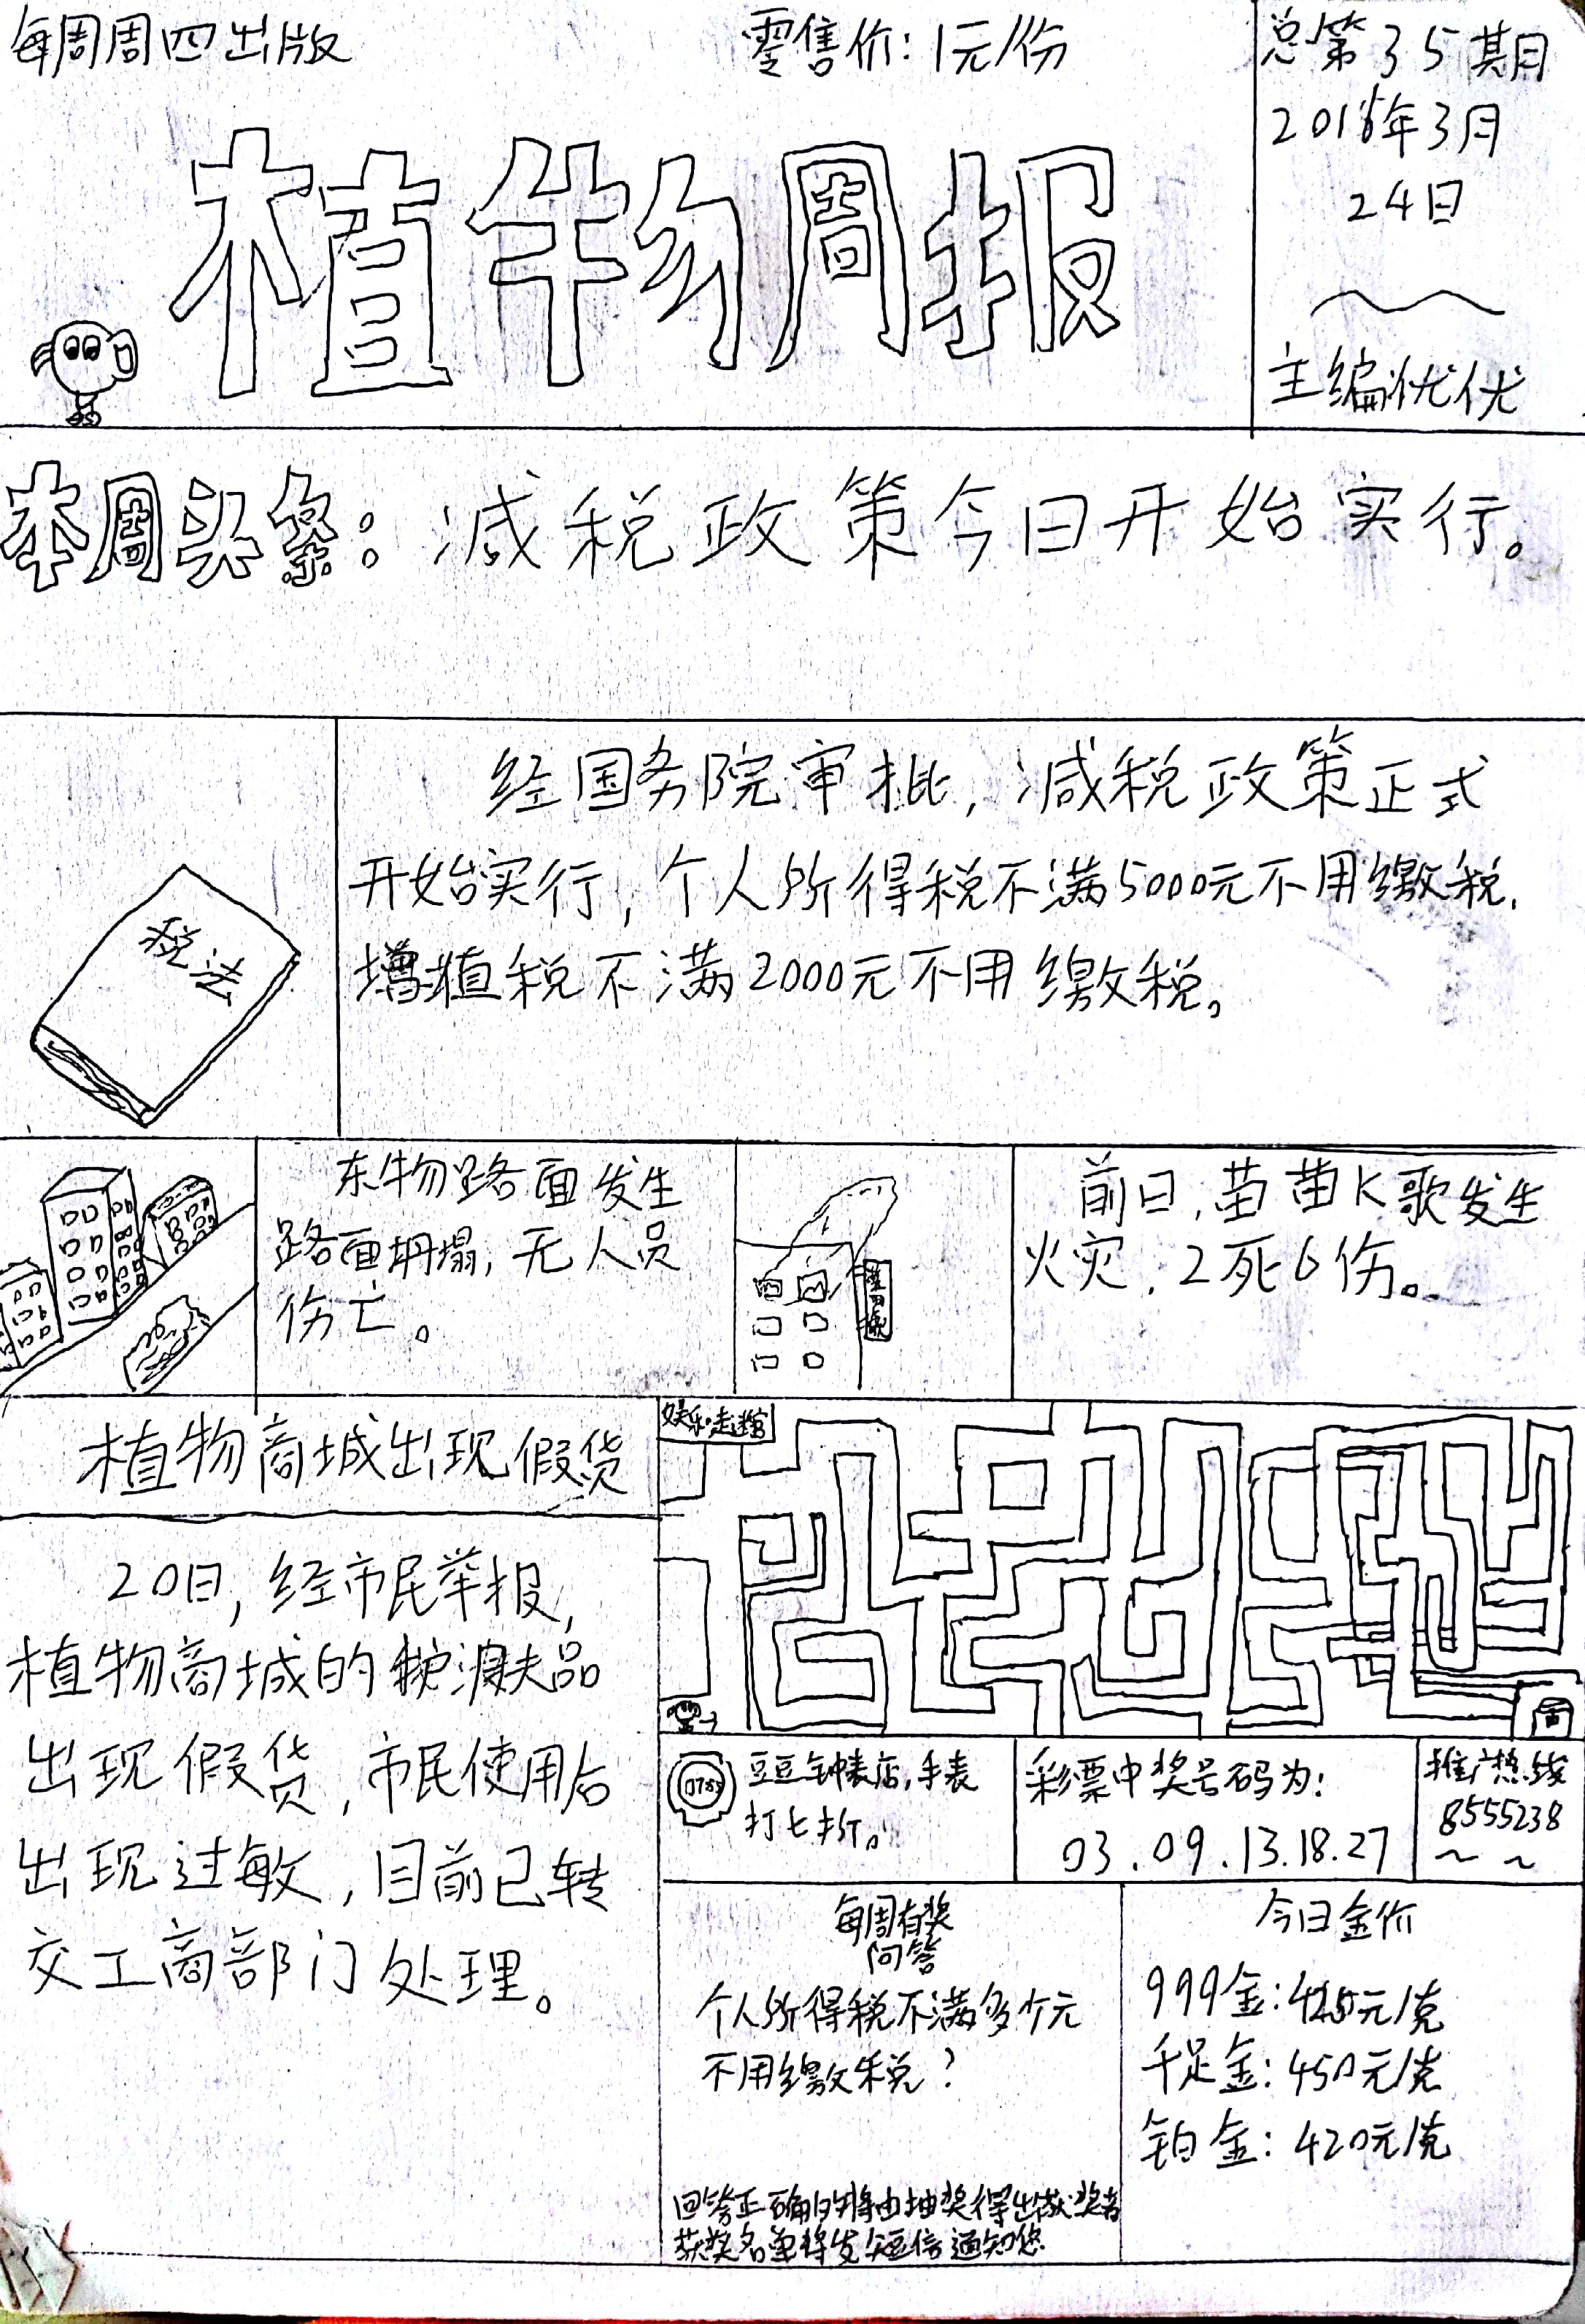 每周周四出版
零售价：1元/份
总第35期
2016年3月
24日
主编优优
植物周报
本周头条：减税政策今日开始实行。
税法
经国务院审批，减税政策正式
开始实行，个人所得税不满5000元不用缴税.
增植税不满2000元不用缴税。
东物路面发生
路面坍塌，无人员
伤亡。
前日，苗苗K歌发生
火灾，2死6伤。
植物商城出现假货
20日，经市民举报，
植物商城的护肤品
出现假货，市民使用后
出现过敏，目前已转
交工商部门处理。
娱乐·走迷宫
豆豆钟表店，手表
打七折。
彩票中奖号码为：
03.09.13.18.27
推广热线
8555238
～ ～
每周有奖
问答
个人所得税不满多少元
不用缴税？
回答正确的将由抽奖得出获奖者
获奖名单将发短信通知您
今日金价
999金：425元/克
千足金：450元/克
铂金：420元/克